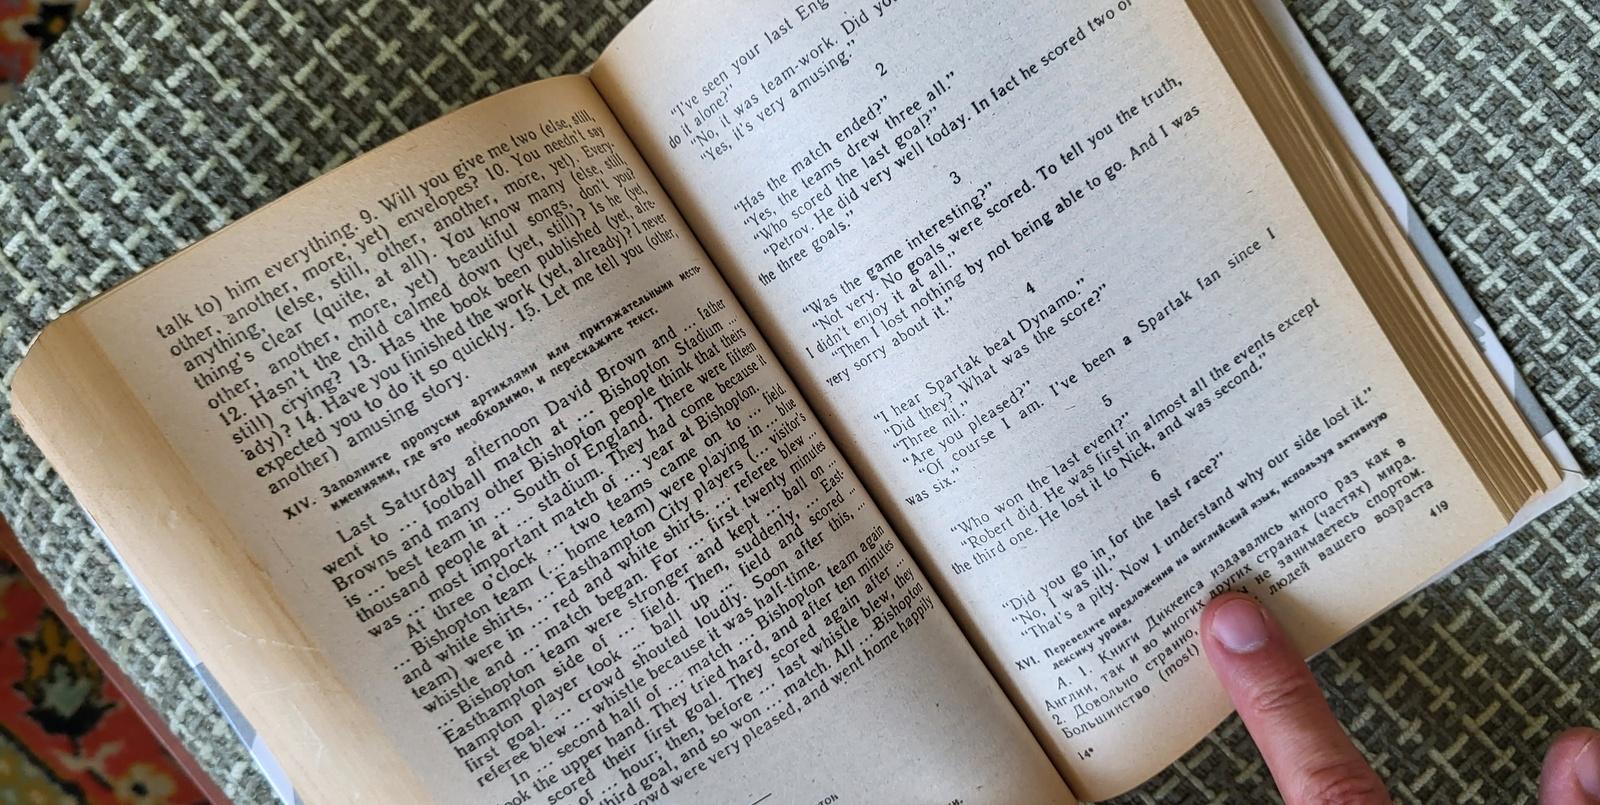 talk to) him everything. 9. Will you give me two (else, still,
other, another, more, yet) envelopes? 10. You needn't say
anything, (else, still, other, another, more, yet). Every-
thing's clear (quite, at all). You know many (else, still,
other, another, more, yet) beautiful songs, don't you?
12. Hasn't the child calmed down (yet, still)? Is he (yet,
still) crying? 13. Has the book been published (yet, alre-
ady)? 14. Have you finished the work (yet, already)? I never
expected you to do it so quickly. 15. Let me tell you (other,
another) amusing story.
XIV. Заполните пропуски артиклями или притяжательными место-
имениями, где это необходимо, и перескажите текст.
Last Saturday afternoon David Brown and ... father
went to ... football match at ... Bishopton Stadium ...
Browns and many other Bishopton people think that theirs
is ... best team in ... South of England. There were fifteen
thousand people at ... stadium. They had come because it
was ... most important match of ... year at Bishopton.
At three o'clock ... two teams came on to ... field.
... Bishopton team (... home team) were playing in ... blue
and white shirts, ... Easthampton City players (... visitor's
team) were in ... red and white shirts. ... referee blew ...
whistle and ... match began. For ... first twenty minutes
... Bishopton team were stronger and kept ... ball on ...
Easthampton side of ... field. Then, suddenly ... East-
hampton player took ... ball up ... field and scored ...
first goal. ... crowd shouted loudly. Soon after this, ...
referee blew ... whistle because it was half-time.
In ... second half of ... match ... Bishopton team again
took the upper hand. They tried hard, and after ten minutes
scored their first goal. They scored again after ...
of ... hour, then, before ... last whistle blew, they
third goal, and so won ... match. All ... Bishopton
crowd were very pleased, and went home happily
"I've seen your last Eng
do it alone?"
"No, it was team-work. Did you
"Yes, it's very amusing."
2
"Has the match ended?"
"Yes, the teams drew three all."
"Who scored the last goal?"
"Petrov. He did very well today. In fact he scored two of
the three goals."
3
"Was the game interesting?"
"Not very. No goals were scored. To tell you the truth,
I didn't enjoy it at all."
"Then I lost nothing by not being able to go. And I was
very sorry about it."
4
"I hear Spartak beat Dynamo."
"Did they? What was the score?"
"Three nil."
"Are you pleased?"
"Of course I am. I've been a Spartak fan since I
was six."
5
"Who won the last event?"
"Robert did. He was first in almost all the events except
the third one. He lost it to Nick, and was second."
6
"Did you go in for the last race?"
"No, I was ill."
"That's a pity. Now I understand why our side lost it."
XVI. Переведите предложения на английский язык, используя активную
лексику урока.
А. 1. Книги Диккенса издавались много раз как в
Англии, так и во многих других странах (частях) мира.
2. Довольно странно, не занимаетесь спортом.
Большинство (most) людей вашего возраста
14*
419